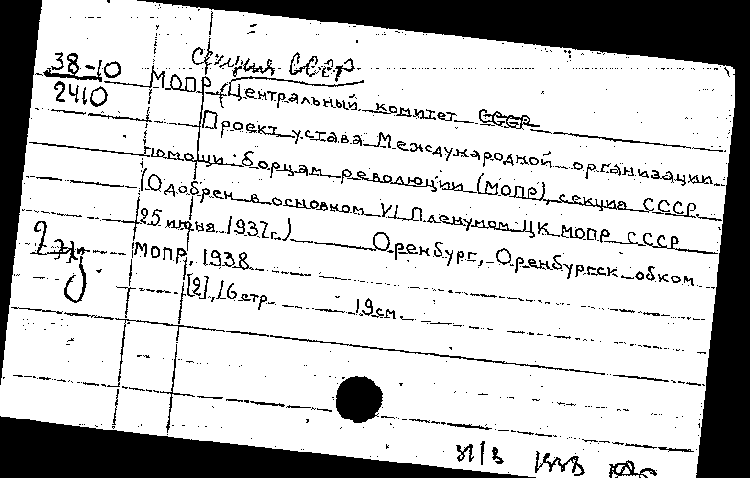 секция СССР
38-10
2410
МОПР (Центральный комитет СССР
Проект устава Международной организации
помощи борцам революции (МОПР), секция СССР.
(Одобрен в основном VI Пленумом ЦК МОПР СССР
25 июня 1937г.) Оренбург, Оренбургск. обком
МОПР, 1938
[2], 16 стр. 19см.
2 экз
31/3 1938